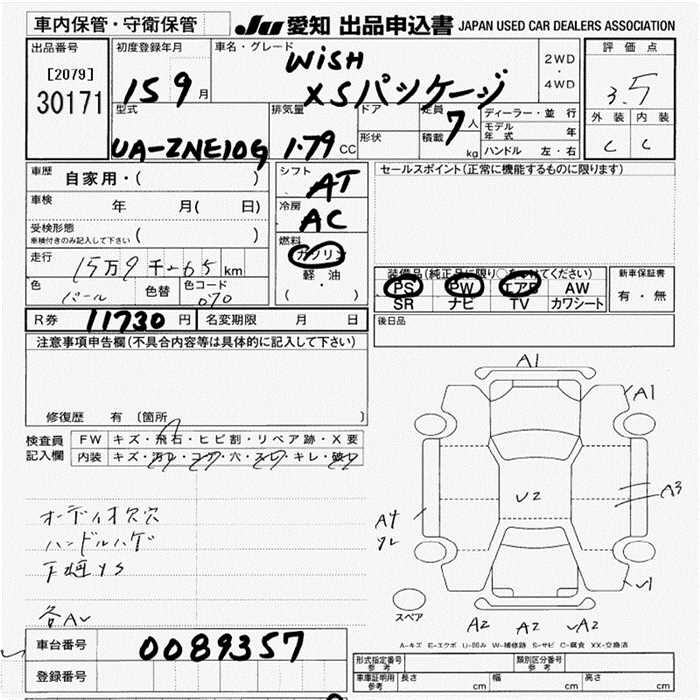 車内保管・守衛保管
JU 愛知 出品申込書 JAPAN USED CAR DEALERS ASSOCIATION
出品番号
[2079]
30171
初度登録年月
15 9 月
車名・グレード
WiSH
XSパッケージ
2WD
・
4WD
評価点
3.5
外装 内装
C C
型式
UA-ZNE10G
排気量
1.79 CC
ドア
形状
定員
7 人
積載
kg
ディーラー・並行
モデル年式 年
ハンドル 左・右
車歴
自家用・( )
車検
年 月( 日)
受検形態
車検付きのみ記入して下さい ( )
走行
15万9千-65 km
色
パール
色替
色コード
070
シフト
AT
冷房
AC
燃料
ガソリン
軽・油
( ・ )
セールスポイント(正常に機能するものに限ります)
装備品(純正品に限り○をつけてください)
PS PW エアB AW
SR ナビ TV カワシート
新車保証書
有・無
R券 11730 円 名変期限 月 日
後日品
注意事項申告欄(不具合内容等は具体的に記入して下さい)
修復歴 有 〔箇所 〕
検査員
記入欄
FW キズ・飛石・ヒビ割・リペア跡・X要
内装 キズ・汚れ・コゲ・穴・スレ・キレ・破レ
オーディオ欠穴
ハンドルハゲ
下廻りS
各A
A1
A1
A3
U2
A4
A2 A2 A2
スペア
A-キズ E-エクボ U-凹み W-補修跡 S-サビ C-腐食 XX-交換済
車台番号 0089357
登録番号
形式指定番号 参考
類別区分番号 参考
車庫証明用 参考 長さ cm 幅 cm 高さ cm